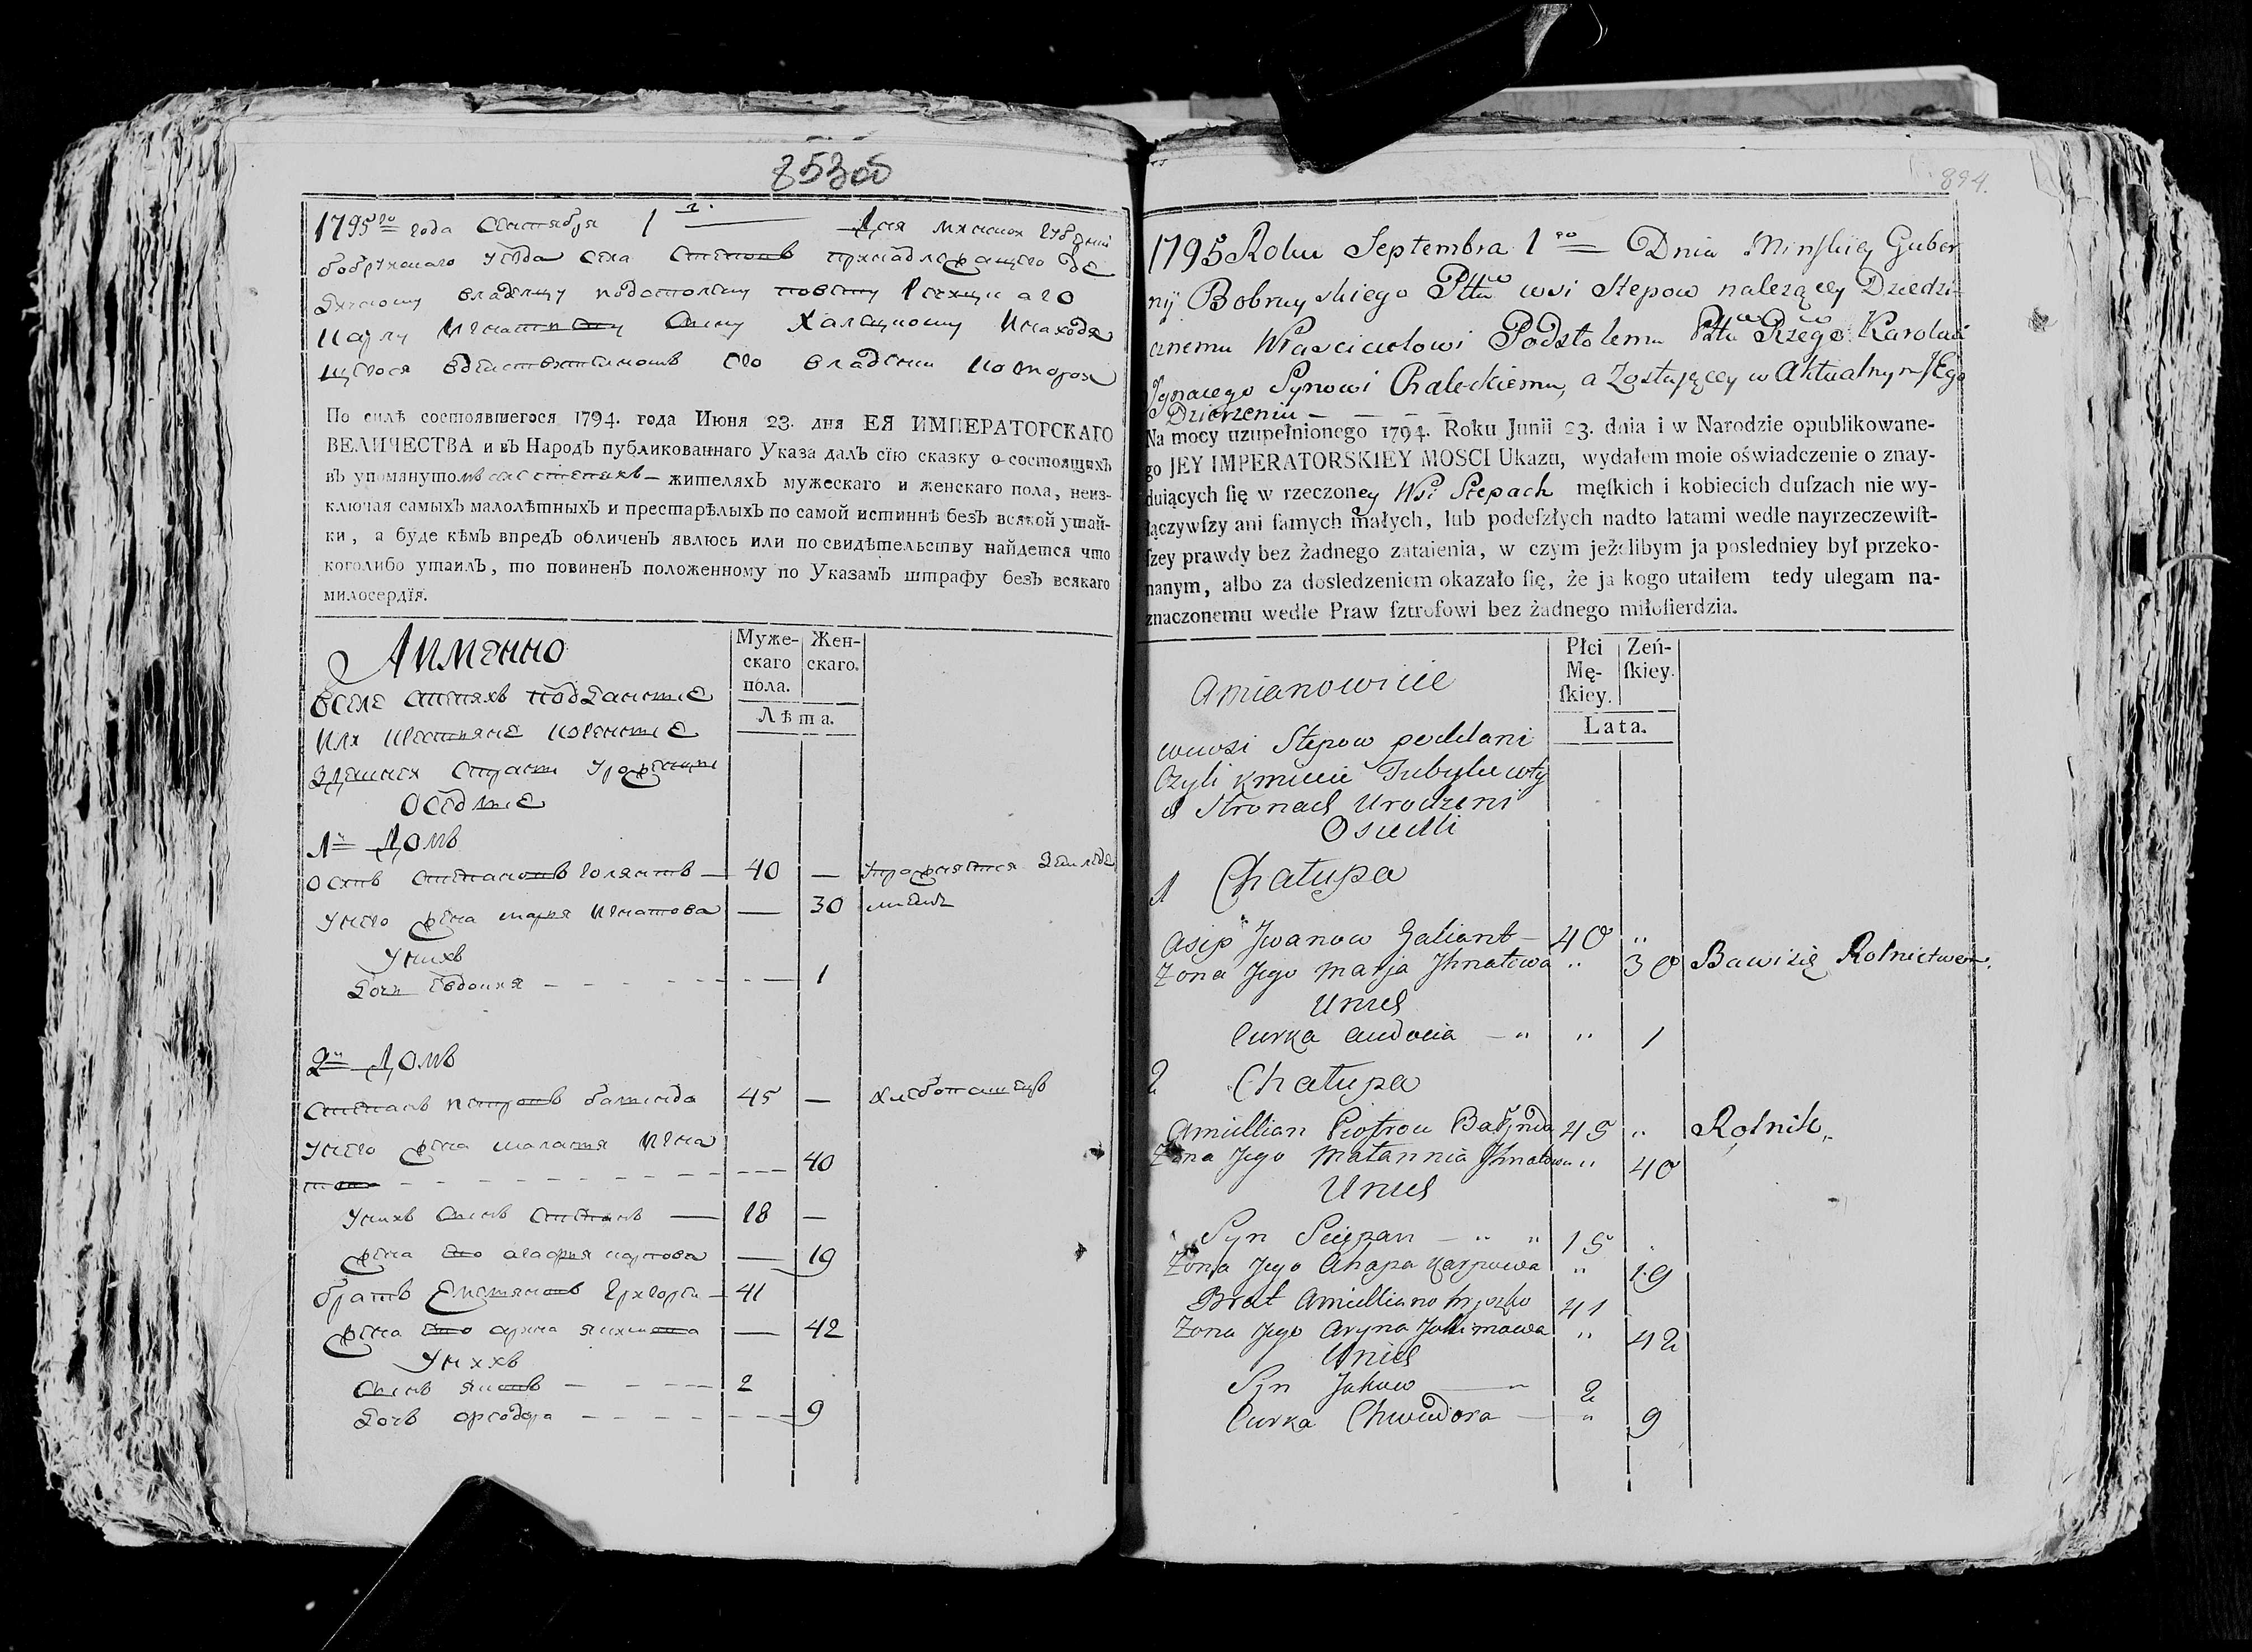 853об
1795го года Сентября 1 Дня минской губерний
бобруйскаго уезда села Степовъ принадлежащего де
дичному владелцу подстолему повету Речицкаго
Каролу Игнатиеву сыну Халецкому и находя
щегося вдействителномъ его владении которой
По силѣ состоявшегося 1794. года Июня 23. дня ЕЯ ИМПЕРАТОРСКАГО
ВЕЛИЧЕСТВА и въ Народъ публикованнаго Указа далъ сїю сказку о состоящихъ
въ упомянутомъ селе степахъ — жителяхъ мужескаго и женскаго пола, неиз-
ключая самыхъ малолѣтныхъ и престарѣлыхъ по самой истиннѣ безъ всякой утай-
ки, а буде кѣмъ впредъ обличенъ явлюсь или по свидѣтельству найдется что
коголибо утаилъ, то повиненъ положенному по Указамъ штрафу безъ всякаго
милосердїя.
Аименно
Муже-
скаго
пола.
Жен-
скаго.
Лѣта.
Вселе степахъ подданние
или крестьяне коренние
Уроженци
оседлие
1й Домъ
Осипъ Голянтъ — 40 — упражняется земледе
У него жена мария Игнатова — 30 лиемъ
У нихъ
Дочь Евдокия - - - - — 1
2й Домъ
петровъ 45 — хлебопашецъ
У него жена маланя Игна
това - - - - 40
У нихъ Сынъ Степанъ — 18 —
жена его агафия карпова — 19
братъ Емелянов Григорей — 41
жена его арина якимова — 42
У нихъ
Сынъ яковъ - - - 2
Дочь феодора - - - 9
894.
1795 Roku Septembra 1go Dnia Minskiey Guber
nij Bobruyskiego Pttu wsi Stepow należącey Dziedzi=
cznemu Właścicielowi Podstolemu Pttu Rzego Karolowi
Ignacego Synowi Chaleckiemu, a Zostającey w Aktualnym Jego
Dzierżeniu — — — —
Na mocy uzupełnionego 1794. Roku Junii 23. dnia i w Narodzie opublikowane-
go JEY IMPERATORSKIEY MOSCI Ukazu, wydałem moie oświadczenie o znay-
duiących ſię w rzeczoney Wsi Stepach męſkich i kobiecich duſzach nie wy-
łączywſzy ani ſamych małych, lub podeſzłych nadto latami wedle nayrzeczewiſt-
ſzey prawdy bez żadnego zataienia, w czym jeżelibym ja posledniey był przeko-
nanym, albo za dosledzeniem okazało ſię, że ja kogo utaiłem tedy ulegam na-
znaczonemu wedle Praw ſztrofowi bez żadnego miłoſierdzia.
Amianowicie
Płci
Mę-
ſkiey.
Zeń-
ſkiey.
Lata.
wewsi Stepow poddani
Czyli kmiecie Tubylce w ty
ch Stronach Urodzeni
Osiedli
1 Chałupa
Asip Iwanow Galiant — 40 "
Zona Jego Marja Ihnatowa " 30 Bawi się Rolnictwem.
Unich
Curka Audocia — " " 1
2 Chałupa
Amillian Piotrow Bałynda 45 " Rolnik
Zona Jego Małannia Ihnatowa " 40
Unich
Syn Sciepan — " " 18
Zona Jego Ahapa Karpowa " 19
Brat Amilliano hryszko 41
Zona Jego Aryna Jakimowa " 42
Unich
Syn Jakow — " 2
Curka Chwiedora — " 9